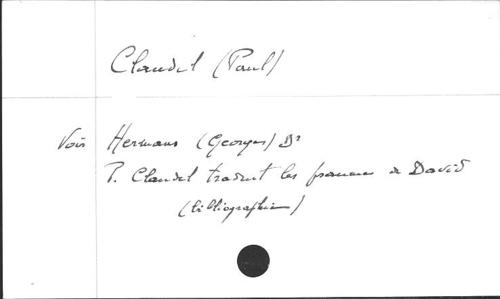 Claudel (Paul)
Voir Hermans (Georges) Dr
P. Claudel traduit les psaumes de David
(bibliographie)